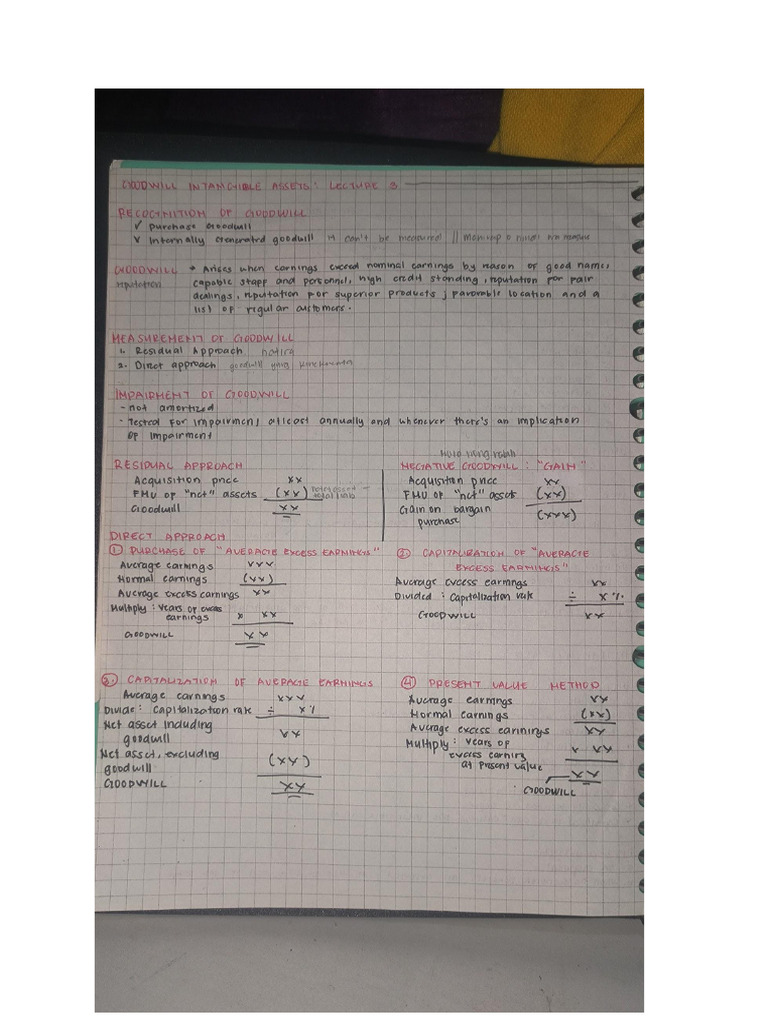 GOODWILL INTANGIBLE ASSETS: LECTURE 3
RECOGNITION OF GOODWILL
✓ Purchase Goodwill
✓ Internally Generated goodwill → can't be measured ||
GOODWILL → Arises when earnings exceed nominal earnings by reason of good name,
reputation capable staff and personnel, high credit standing, reputation for fair
dealings, reputation for superior products; favorable location and a
list of regular customers.
MEASUREMENT OF GOODWILL
1. Residual Approach
2. Direct approach goodwill
IMPAIRMENT OF GOODWILL
- not amortized
- Tested for impairment, atleast annually and whenever there's an implication
of impairment
RESIDUAL APPROACH
Acquisition price xx
FMU of "net" assets (xx)
Goodwill xx
NEGATIVE GOODWILL: "GAIN"
Acquisition price xx
FMU of "net" assets (xx)
Gain on bargain (xxx)
purchase
DIRECT APPROACH
① PURCHASE OF "AVERAGE EXCESS EARNINGS"
Average earnings xxx
Normal earnings (xx)
Average excess earnings xx
Multiply: Years of excess
earnings x xx
GOODWILL xx
② CAPITALIZATION OF "AVERAGE
EXCESS EARNINGS"
Average excess earnings xx
Divided: Capitalization rate ÷ x%
GOODWILL xx
③ CAPITALIZATION OF AVERAGE EARNINGS
Average earnings xxx
Divide: Capitalization rate ÷ x%
Net asset including
goodwill xx
Net asset, excluding
goodwill (xx)
GOODWILL xx
④ PRESENT VALUE METHOD
Average earnings xx
Normal earnings (xx)
Average excess earnings xx
Multiply: Years of
excess earning x xx
at present value xx
: GOODWILL